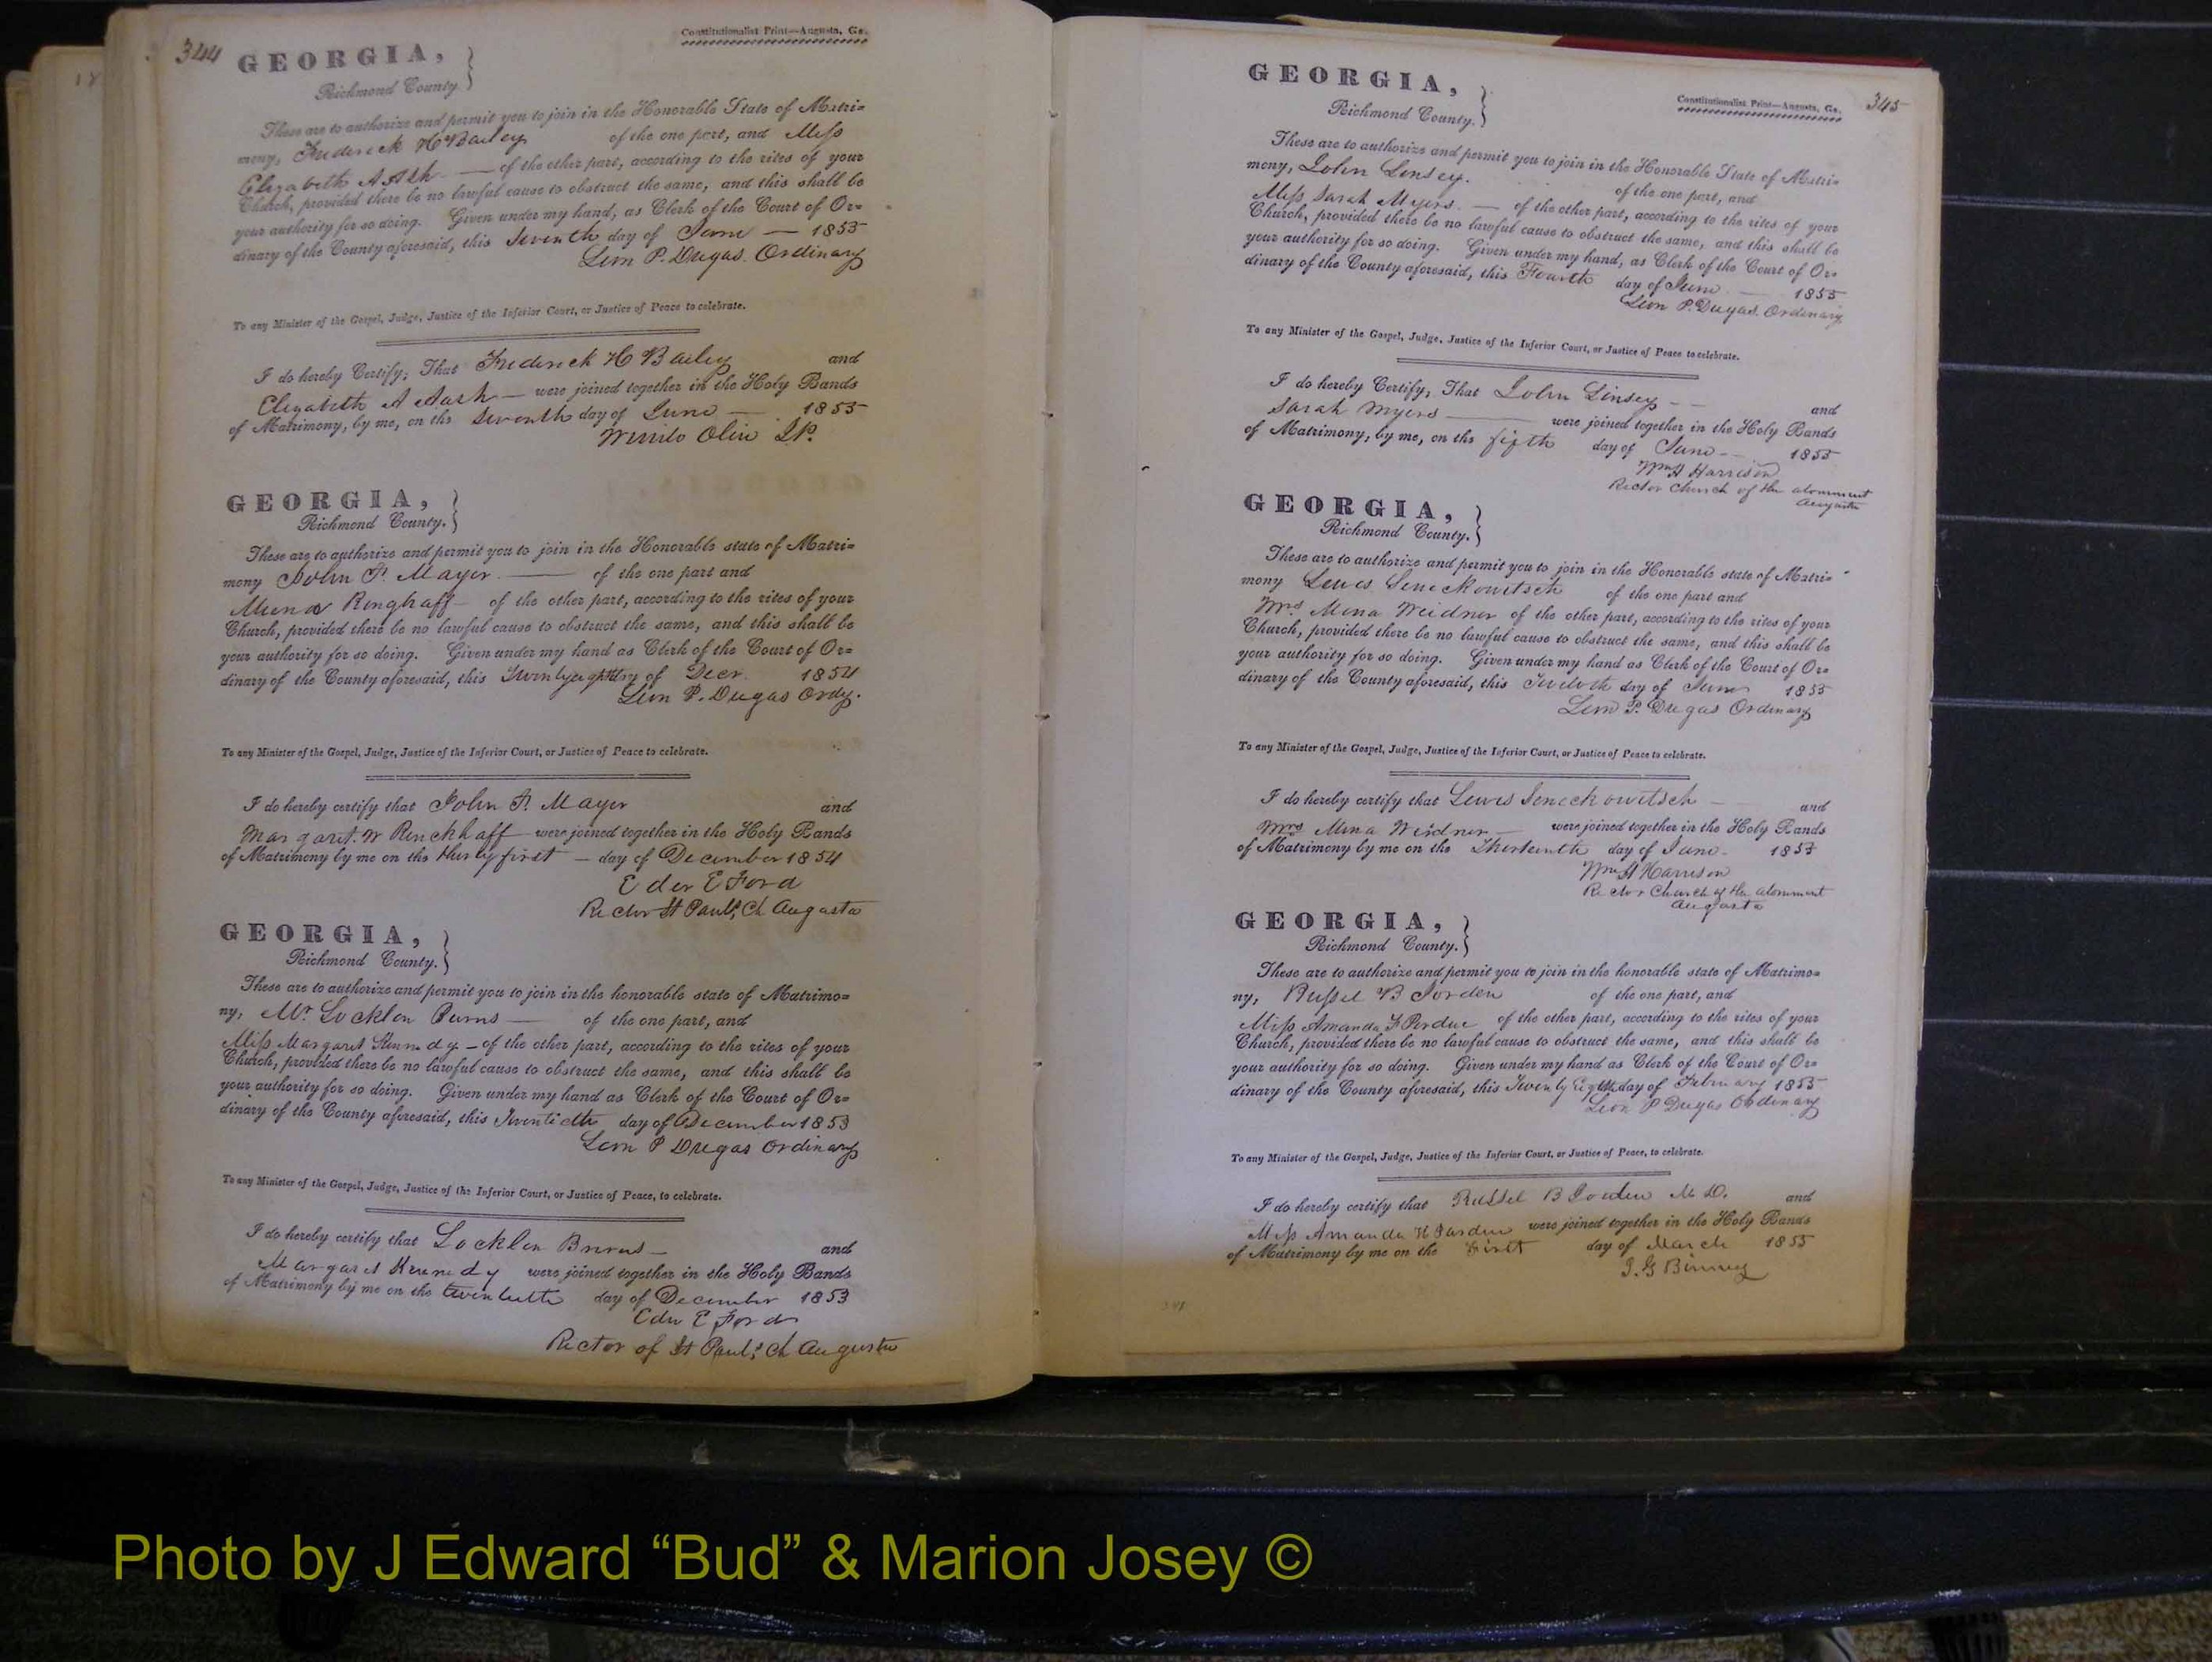 344
Constitutionalist Print—Augusta, Ga.
GEORGIA,
Richmond County.
These are to authorize and permit you to join in the Honorable State of Matri-
mony, Frederick H Bailey of the one part, and Miss
Elizabeth A Ash — of the other part, according to the rites of your
Church, provided there be no lawful cause to obstruct the same, and this shall be
your authority for so doing. Given under my hand, as Clerk of the Court of Or-
dinary of the County aforesaid, this Seventh day of June — 1855
Leon P. Dugas. Ordinary
To any Minister of the Gospel, Judge, Justice of the Inferior Court, or Justice of Peace to celebrate.
I do hereby Certify, That Frederick H Bailey and
Elizabeth A Ash — were joined together in the Holy Bands
of Matrimony, by me, on the Seventh day of June — 1855
Olin J.P.
GEORGIA,
Richmond County.
These are to authorize and permit you to join in the Honorable state of Matri-
mony John F. Mayer — of the one part and
Mena Ringhaff — of the other part, according to the rites of your
Church, provided there be no lawful cause to obstruct the same, and this shall be
your authority for so doing. Given under my hand as Clerk of the Court of Or-
dinary of the County aforesaid, this day of Decr. 1854
Leon P. Dugas Ordy.
To any Minister of the Gospel, Judge, Justice of the Inferior Court, or Justice of Peace to celebrate.
I do hereby certify that John F. Mayer and
Margaret. W Renckhaff — were joined together in the Holy Bands
of Matrimony by me on the thirty first — day of December 1854
E Ford
Rector St Paul's Ch Augusta
GEORGIA,
Richmond County.
These are to authorize and permit you to join in the honorable state of Matrimo-
ny, Mr Locklen Burns — of the one part, and
Miss Margaret Kennedy — of the other part, according to the rites of your
Church, provided there be no lawful cause to obstruct the same, and this shall be
your authority for so doing. Given under my hand as Clerk of the Court of Or-
dinary of the County aforesaid, this Twentieth day of December 1853
Leon P Dugas Ordinary
To any Minister of the Gospel, Judge, Justice of the Inferior Court, or Justice of Peace, to celebrate.
I do hereby certify that Locklen Burns — and
Margaret Kennedy were joined together in the Holy Bands
of Matrimony by me on the twentieth day of December 1853
Edw E Ford
Rector of St Paul's Ch Augusta
345
Constitutionalist Print—Augusta, Ga.
GEORGIA,
Richmond County.
These are to authorize and permit you to join in the Honorable State of Matri-
mony, John Linsey. of the one part, and
Miss Sarah Myers. — of the other part, according to the rites of your
Church, provided there be no lawful cause to obstruct the same, and this shall be
your authority for so doing. Given under my hand, as Clerk of the Court of Or-
dinary of the County aforesaid, this Fourth day of June — 1855
Leon P. Dugas. Ordinary
To any Minister of the Gospel, Judge, Justice of the Inferior Court, or Justice of Peace to celebrate.
I do hereby Certify, That John Linsey — and
Sarah Myers — were joined together in the Holy Bands
of Matrimony, by me, on the fifth day of June — 1855
Wm H Harrison
Rector Church of the atonement
Augusta
GEORGIA,
Richmond County.
These are to authorize and permit you to join in the Honorable state of Matri-
mony Lewis Seneckowitsch of the one part and
Mrs Mena Weidner of the other part, according to the rites of your
Church, provided there be no lawful cause to obstruct the same, and this shall be
your authority for so doing. Given under my hand as Clerk of the Court of Or-
dinary of the County aforesaid, this Twelfth day of June 1855
Leon P. Dugas Ordinary
To any Minister of the Gospel, Judge, Justice of the Inferior Court, or Justice of Peace to celebrate.
I do hereby certify that Lewis Seneckowitsch — and
Mrs Mena Weidner — were joined together in the Holy Bands
of Matrimony by me on the Thirteenth day of June 1855
Wm H Harrison
Rector Church of the atonement
Augusta
GEORGIA,
Richmond County.
These are to authorize and permit you to join in the honorable state of Matrimo-
ny, Russel B Jorden of the one part, and
Miss Amanda F Perdue of the other part, according to the rites of your
Church, provided there be no lawful cause to obstruct the same, and this shall be
your authority for so doing. Given under my hand as Clerk of the Court of Or-
dinary of the County aforesaid, this Twenty Eighth day of February 1855
Leon P Dugas Ordinary
To any Minister of the Gospel, Judge, Justice of the Inferior Court, or Justice of Peace, to celebrate.
I do hereby certify that Russel B Jorden M.D. and
Miss Amanda were joined together in the Holy Bands
of Matrimony by me on the First day of March 1855
J. G Binney
Photo by J Edward “Bud” & Marion Josey ©